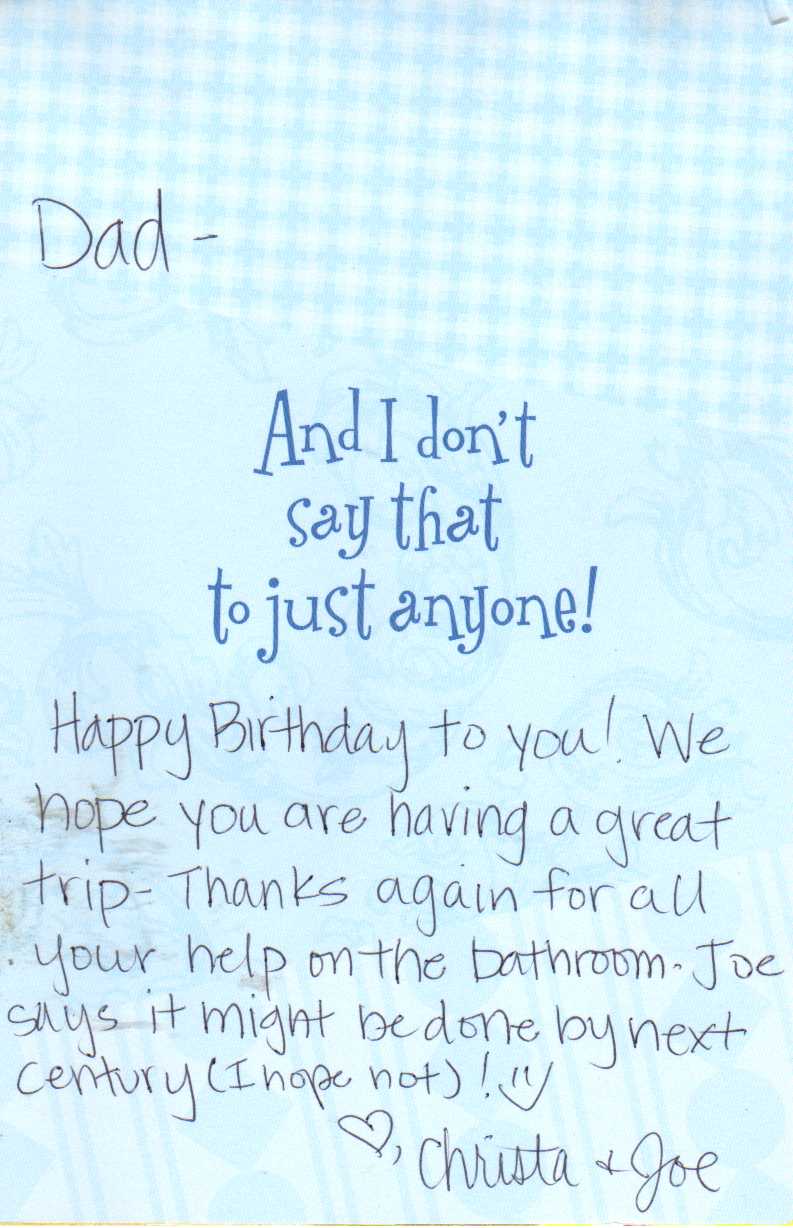 Dad -
And I don't
say that
to just anyone!
Happy Birthday to you! We
hope you are having a great
trip- Thanks again for all
your help on the bathroom. Joe
says it might be done by next
century (I hope not)! :)
♡, Christa + Joe